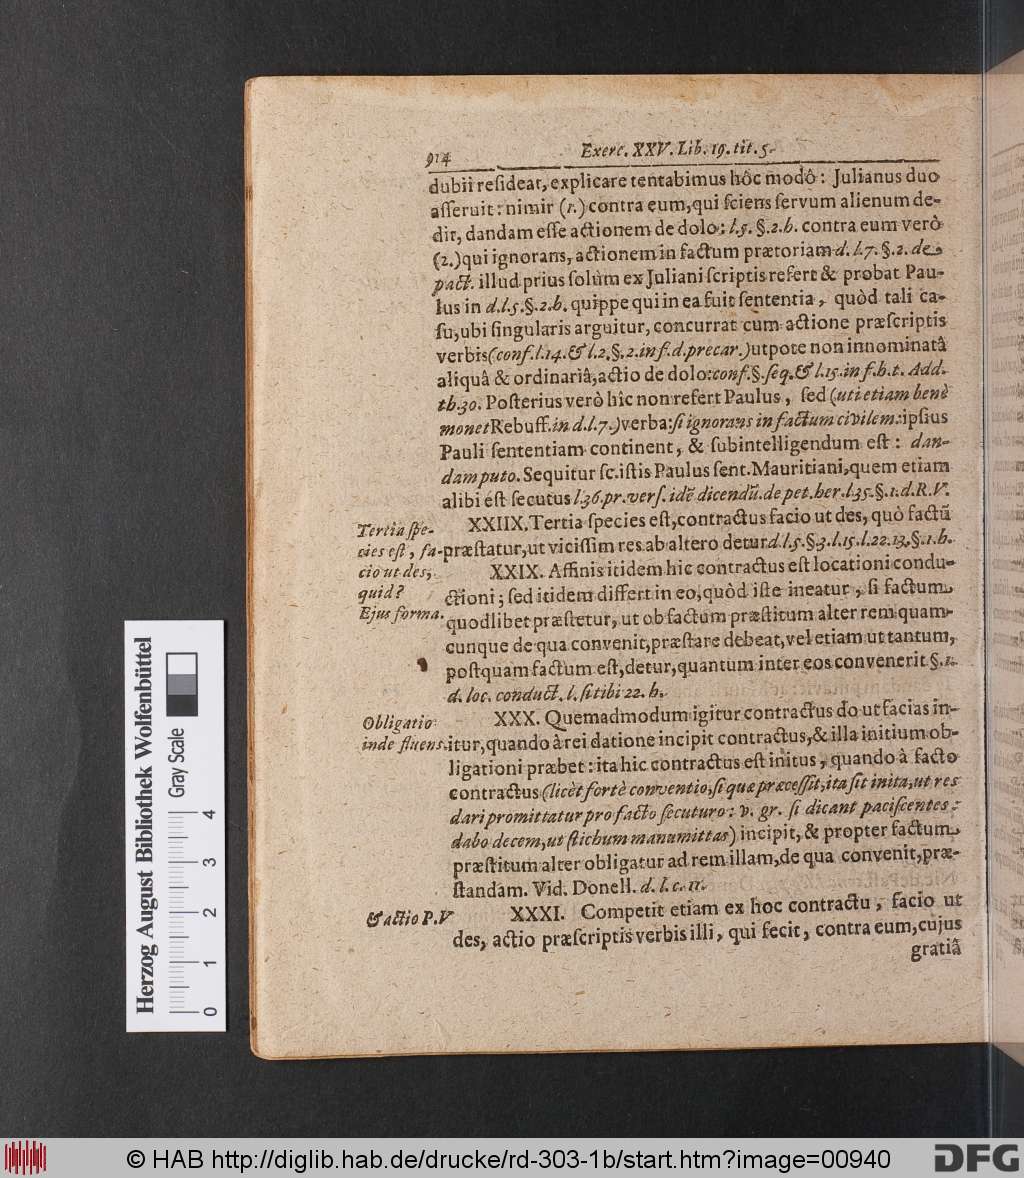 914 Exerc. XXV. Lib. 19. tit. 5.
dubii resideat, explicare tentabimus hôc modô: Julianus duo
asseruit: nimir (1.) contra eum, qui sciens servum alienum de-
dit, dandam esse actionem de dolo: l. 5. §. 2. h. contra eum verò
(2.) qui ignorans, actionem in factum prætoriam d. l. 7. §. 2. de
pact. illud prius solùm ex Juliani scriptis refert & probat Pau-
lus in d. l. 5. §. 2. h. quippe qui in ea fuit sententia, quòd tali ca-
su, ubi singularis arguitur, concurrat cum actione præscriptis
verbis (conf. l. 14. & l. 2. §. 2. in f. d. precar.) utpote non innominatâ
aliquâ & ordinariâ, actio de dolo: conf. §. seq. & l. 15. in f. h. t. Add.
th. 30. Posterius verò hic non refert Paulus, sed (uti etiam benè
monet Rebuff. in d. l. 7.) verba: si ignorans in factum civilem: ipsius
Pauli sententiam continent, & subintelligendum est: dan-
dam puto. Sequitur sc. istis Paulus sent. Mauritiani, quem etiam
alibi est secutus l. 36. pr. vers. idē dicendū. de pet. her. l. 35. §. 1. d. R. V.
XXIIX. Tertia species est, contractus facio ut des, quò factū
præstatur, ut vicissim res ab altero detur. d. l. 5. §. 3. l. 15. l. 22. 13. §. 1. h.
Tertia spe-
cies est, fa-
cio ut des,
quid?
Ejus forma.
XXIX. Affinis itidem hic contractus est locationi condu-
ctioni; sed itidem differt in eo, quòd iste ineatur, si factum
quodlibet præstetur, ut ob factum præstitum alter rem quam-
cunque de qua convenit, præstare debeat, vel etiam ut tantum,
postquam factum est, detur, quantum inter eos convenerit §. 1.
d. loc. conduct. l. si tibi 22. h.
Obligatio
inde fluens.
XXX. Quemadmodum igitur contractus do ut facias in-
itur, quando à rei datione incipit contractus, & illa initium ob-
ligationi præbet: ita hic contractus est initus, quando à facto
contractus (licèt fortè conventio, si quæ præcessit, ita sit inita, ut res
dari promittatur pro facto secuturo: v. gr. si dicant paciscentes:
dabo decem, ut stichum manumittas) incipit, & propter factum
præstitum alter obligatur ad rem illam, de qua convenit, præ-
standam. Vid. Donell. d. l. c. 11.
& actio P. V
XXXI. Competit etiam ex hoc contractu, facio ut
des, actio præscriptis verbis illi, qui fecit, contra eum, cujus
gratiâ
Herzog August Bibliothek Wolfenbüttel
Gray Scale
0 1 2 3 4
© HAB http://diglib.hab.de/drucke/rd-303-1b/start.htm?image=00940
DFG